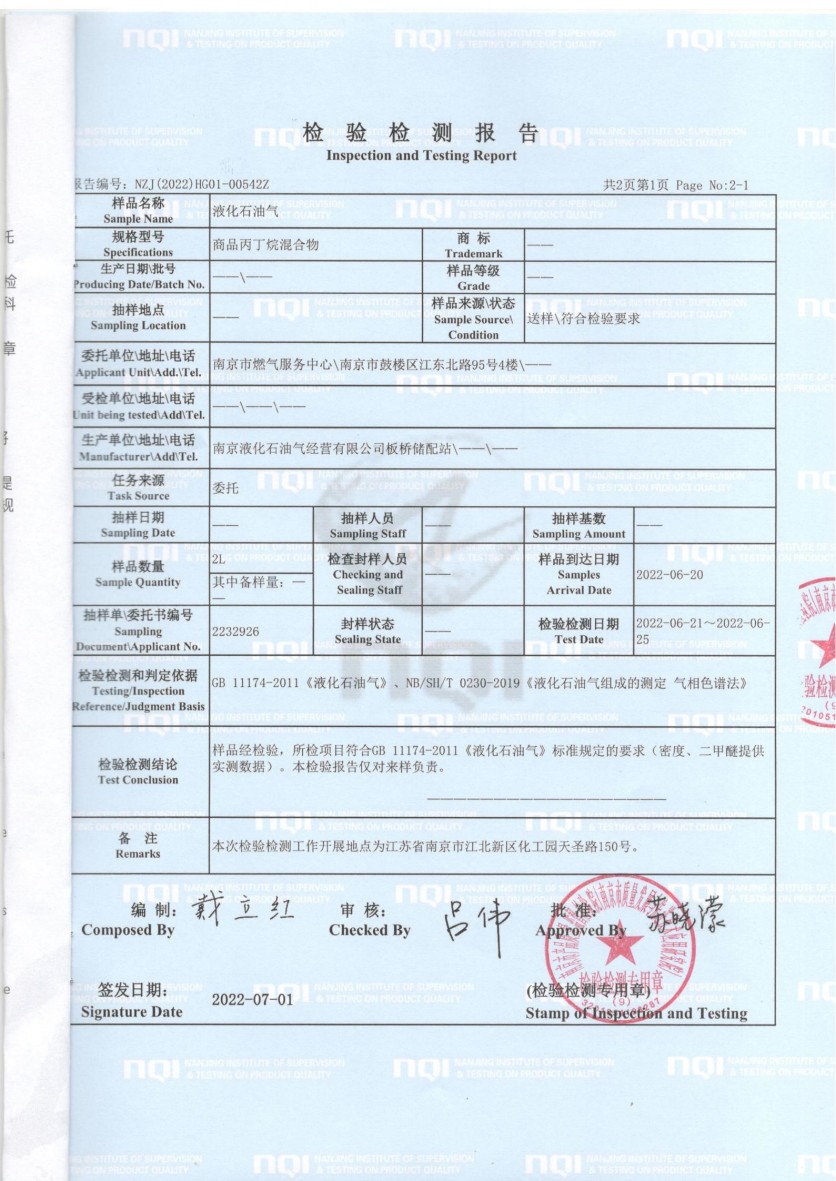 检验检测报告
Inspection and Testing Report
报告编号：NZJ(2022)HG01-00542Z 共2页第1页 Page No:2-1
样品名称
Sample Name
液化石油气
规格型号
Specifications
商品丙丁烷混合物
商 标
Trademark
——
生产日期\批号
Producing Date/Batch No.
——\——
样品等级
Grade
——
抽样地点
Sampling Location
——
样品来源\状态
Sample Source\
Condition
送样\符合检验要求
委托单位\地址\电话
Applicant Unit\Add.\Tel.
南京市燃气服务中心\南京市鼓楼区江东北路95号4楼\——
受检单位\地址\电话
Unit being tested\Add\Tel.
——\——\——
生产单位\地址\电话
Manufacturer\Add\Tel.
南京液化石油气经营有限公司板桥储配站\——\——
任务来源
Task Source
委托
抽样日期
Sampling Date
——
抽样人员
Sampling Staff
——
抽样基数
Sampling Amount
——
样品数量
Sample Quantity
2L
其中备样量：—
—
检查封样人员
Checking and
Sealing Staff
——
样品到达日期
Samples
Arrival Date
2022-06-20
抽样单\委托书编号
Sampling
Document\Applicant No.
2232926
封样状态
Sealing State
——
检验检测日期
Test Date
2022-06-21～2022-06-
25
检验检测和判定依据
Testing/Inspection
Reference/Judgment Basis
GB 11174-2011《液化石油气》、NB/SH/T 0230-2019《液化石油气组成的测定 气相色谱法》
检验检测结论
Test Conclusion
样品经检验，所检项目符合GB 11174-2011《液化石油气》标准规定的要求（密度、二甲醚提供
实测数据）。本检验报告仅对来样负责。
备 注
Remarks
本次检验检测工作开展地点为江苏省南京市江北新区化工园天圣路150号。
编 制：戴立红
Composed By
审 核：吕伟
Checked By
批 准：苏晓濛
Approved By
签发日期：
Signature Date
2022-07-01
(检验检测专用章)
Stamp of Inspection and Testing
检验检测专用章
(9)
nqi
NANJING INSTITUTE OF SUPERVISION
& TESTING ON PRODUCT QUALITY